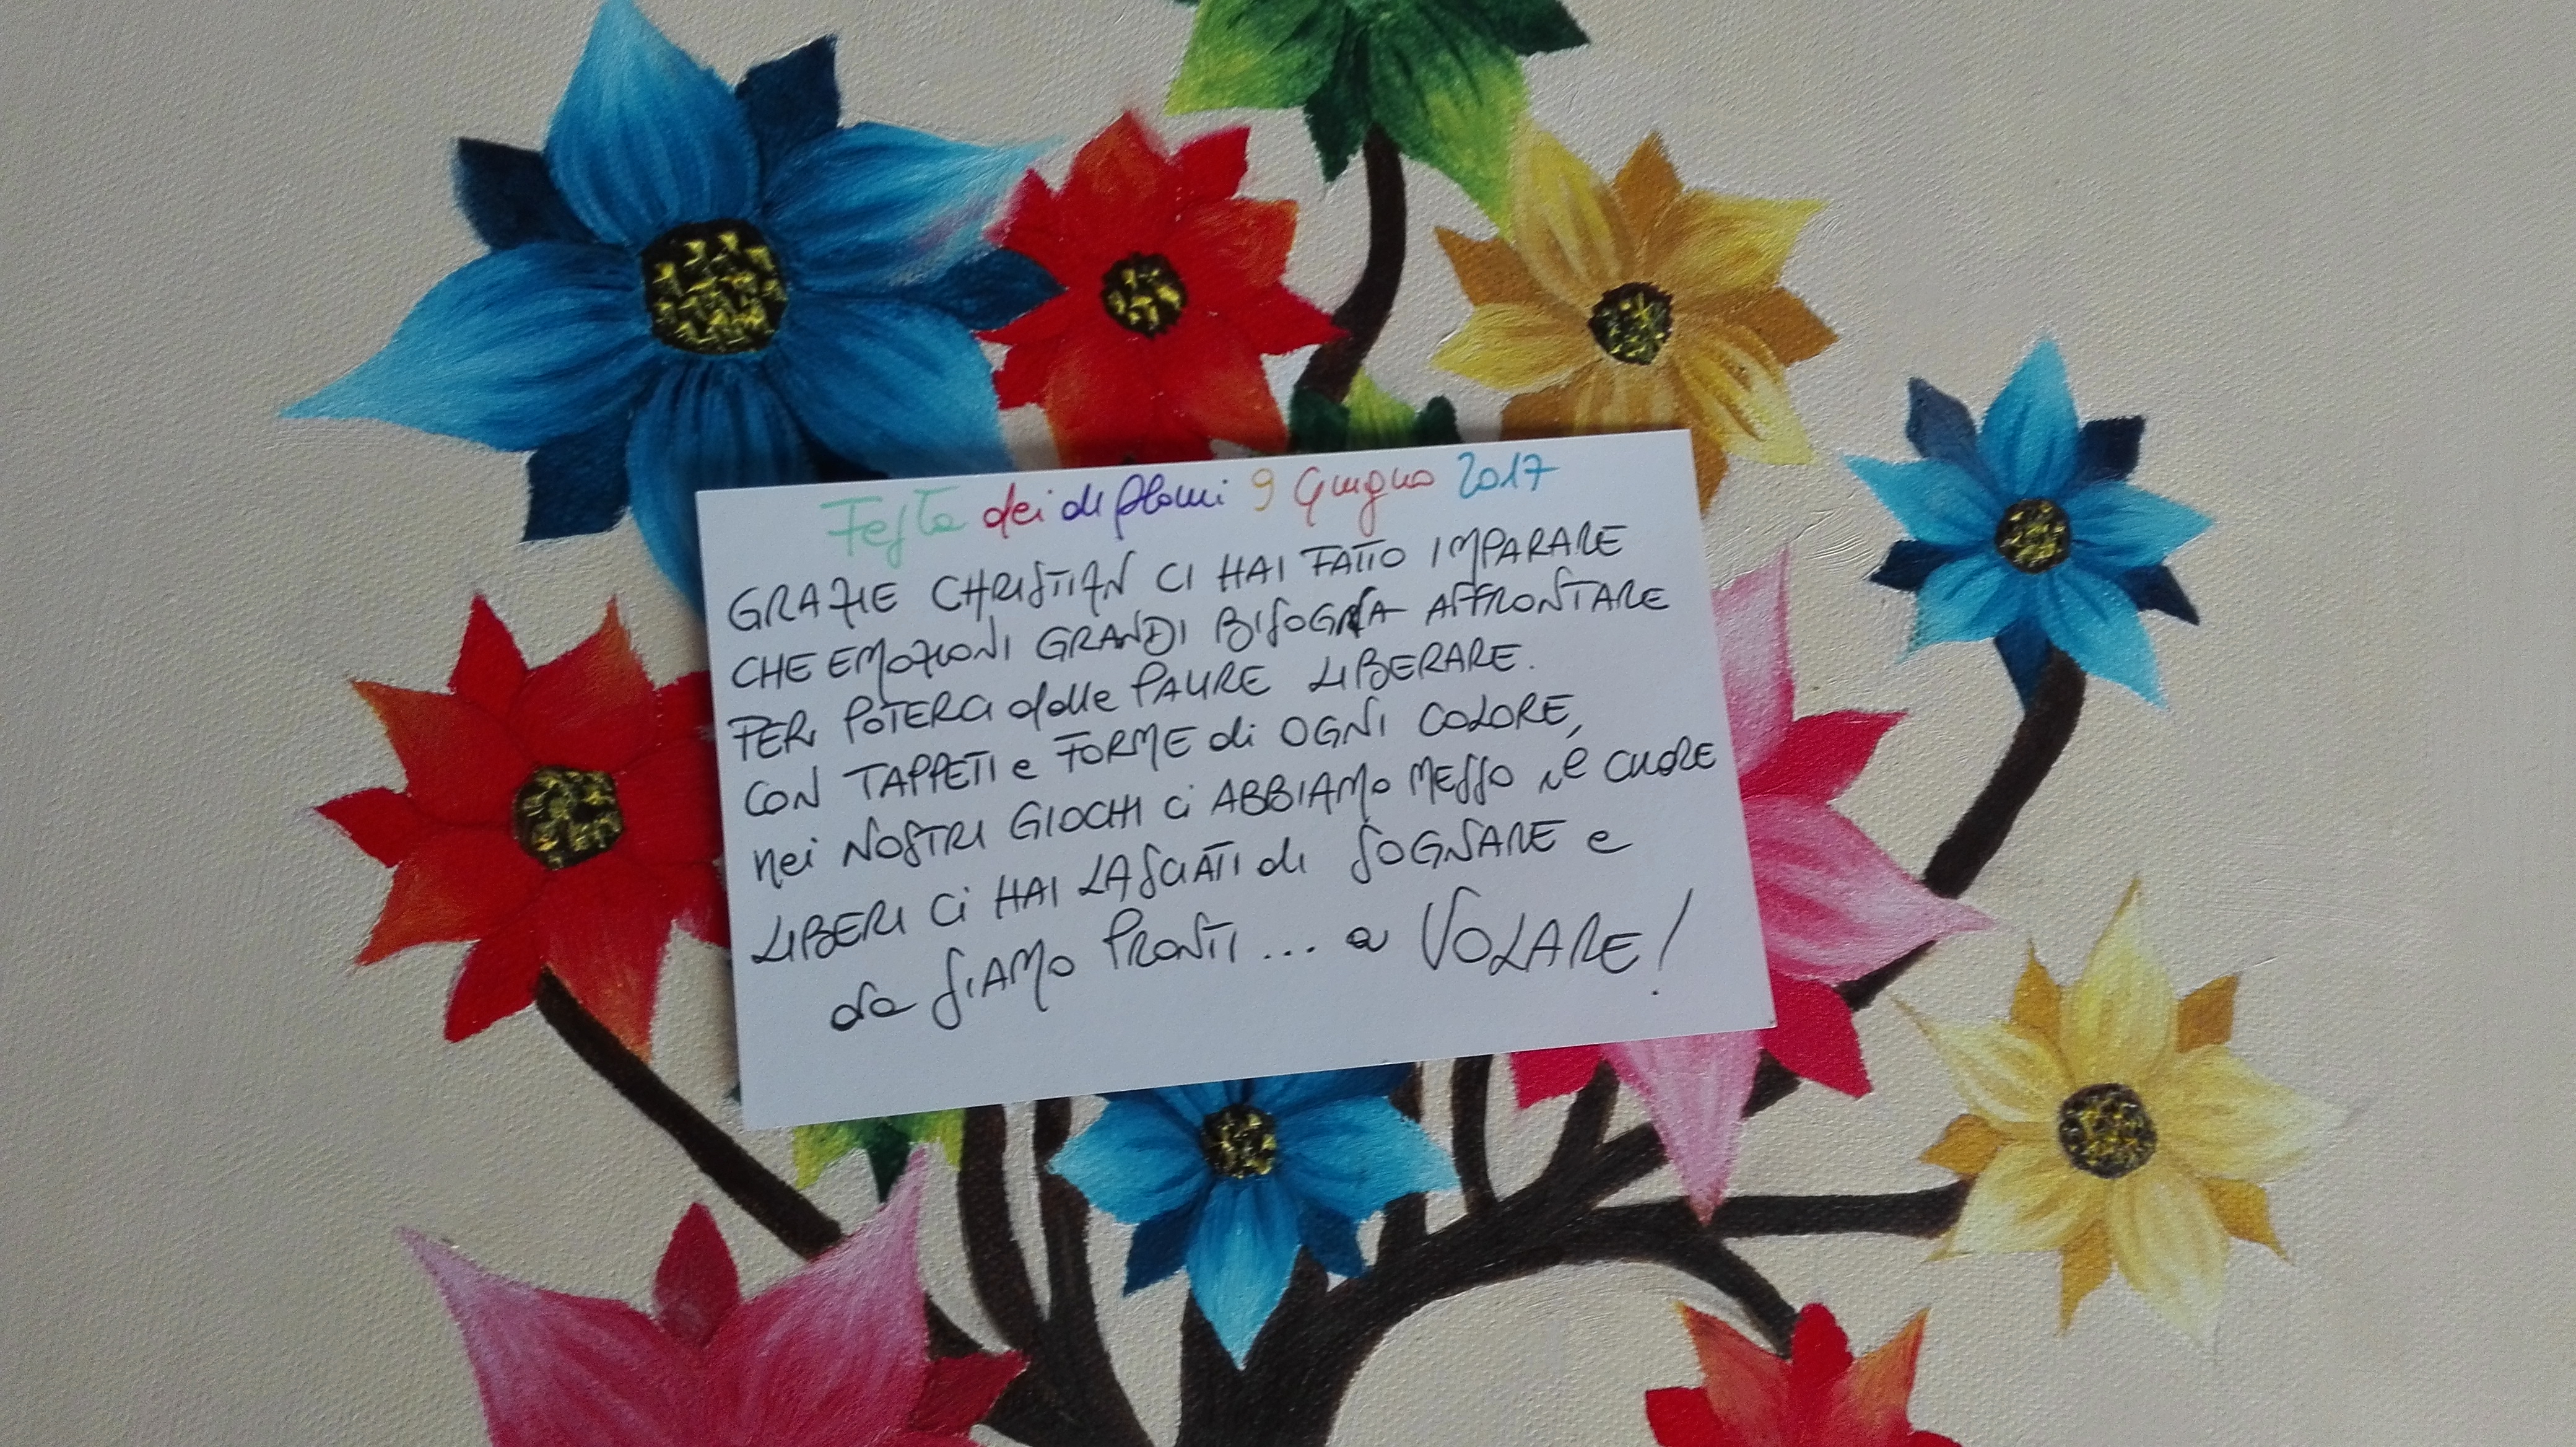 Festa dei diplomi 9 Giugno 2017
GRAZIE CHRISTIAN CI HAI FATTO IMPARARE
CHE EMOZIONI GRANDI BISOGNA AFFRONTARE
PER POTERCI dalle PAURE LIBERARE.
CON TAPPETI e FORME di OGNI COLORE,
nei NOSTRI GIOCHI ci ABBIAMO MESSO il CUORE
LIBERI Ci HAI LASCIATI di SOGNARE e
ora SIAMO PRONTI... a VOLARE!